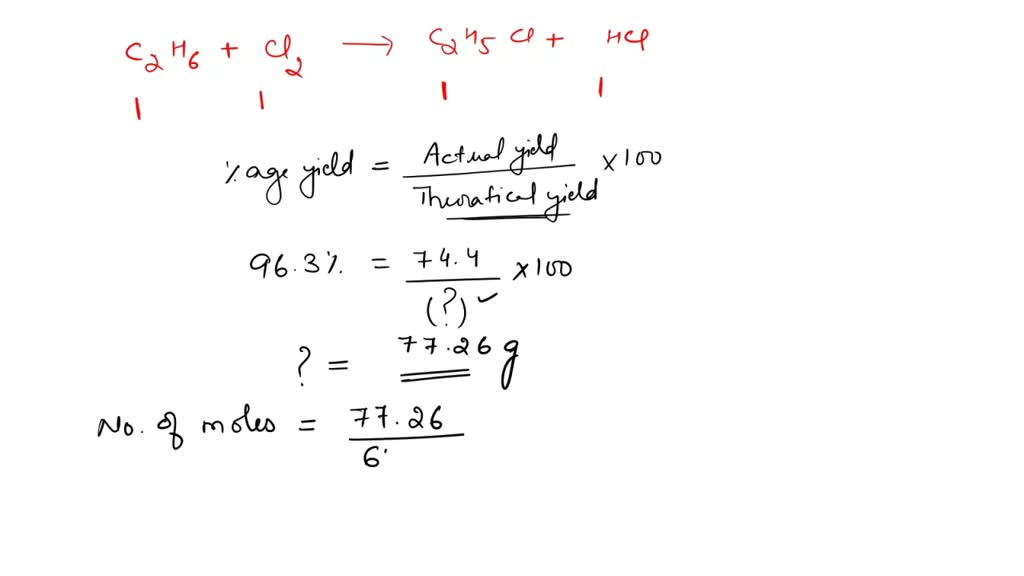 C2H6 + Cl2 → C2H5Cl + HCl
1 1 1 1
% age yield = Actual yield / Theoratical yield × 100
96.3% = 74.4 / (?) ✓ × 100
? = 77.26 g
No. of moles = 77.26 / 6